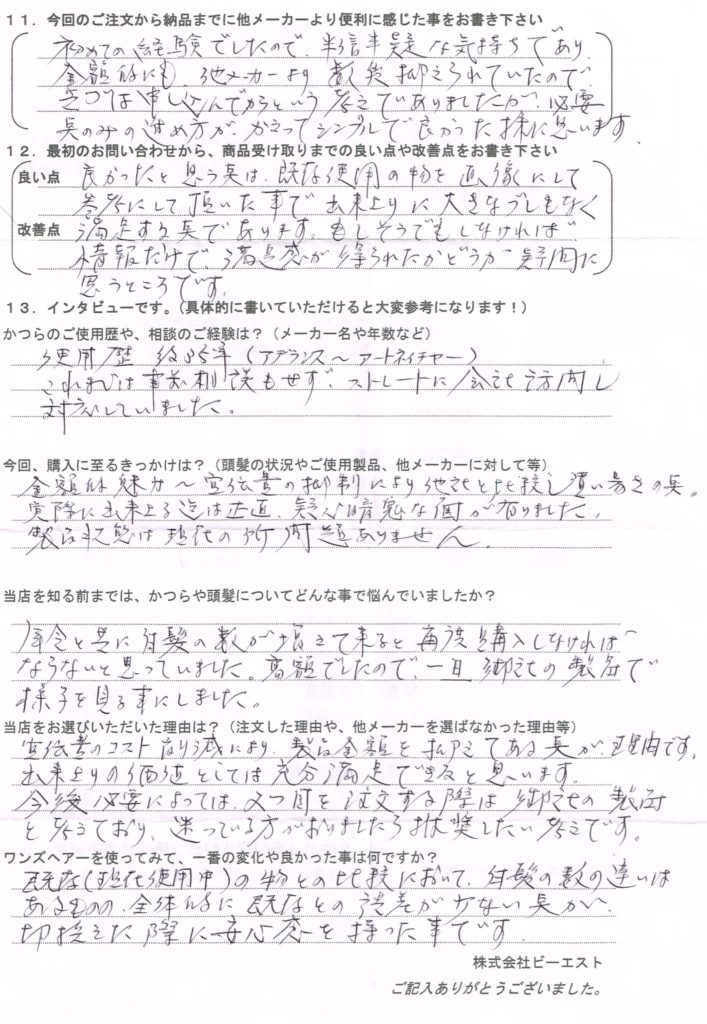 11．今回のご注文から納品までに他メーカーより便利に感じた事をお書き下さい
初めての経験でしたので、半信半疑な気持ちであり、
金額的にも、他メーカーより数段抑えられていたので
まずは申し込んでからという考えでありましたが、必要
点のみの進め方が、かえってシンプルで良かった様に思います。
12．最初のお問い合わせから、商品受け取りまでの良い点や改善点をお書き下さい
良い点 良かったと思う点は、既存使用の物を直接にして
参考にして頂いた事で出来上りに大きなブレもなく
改善点 満足する点であります。もしそうでもしなければ
情報だけで、満足感が得られたかどうか疑問に
思うところです。
13．インタビューです。（具体的に書いていただけると大変参考になります！）
かつらのご使用歴や、相談のご経験は？（メーカー名や年数など）
使用歴 約35年（アデランス～アートネイチャー）
これまでは事前相談もせず、ストレートに会社訪問し
対応していました。
今回、購入に至るきっかけは？（頭髪の状況やご使用製品、他メーカーに対して等）
金額的魅力～宣伝費の抑制により他社と比較し買い易さの点。
実際に出来上る迄は正直、疑心暗鬼な面が有りました。
製品状態は現在の所問題ありません。
当店を知る前までは、かつらや頭髪についてどんな事で悩んでいましたか？
年令と共に白髪の数が増えて来ると再度購入しなければ
ならないと思っていました。高額でしたので、一旦御社の製品で
様子を見る事にしました。
当店をお選びいただいた理由は？（注文した理由や、他メーカーを選ばなかった理由等）
宣伝費のコスト削減により、製品金額を抑えてある点が、理由です。
出来上りの価値としては充分満足できると思います。
今後必要によっては、2つ目を注文する際は御社の製品
と考えており、迷っている方がおりましたら推奨したい考えです。
ワンズヘアーを使ってみて、一番の変化や良かった事は何ですか？
既存（現在使用中）の物との比較において、白髪の数の違いは
あるものの、全体的に既存との誤差が少ない点が、
切換えた際に安心感を持った事です。
株式会社ビーエスト
ご記入ありがとうございました。